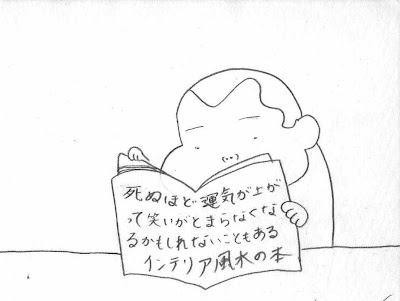 死ぬほど運気が上が
って笑いがとまらなくな
るかもしれないこともある
インテリア風水の本